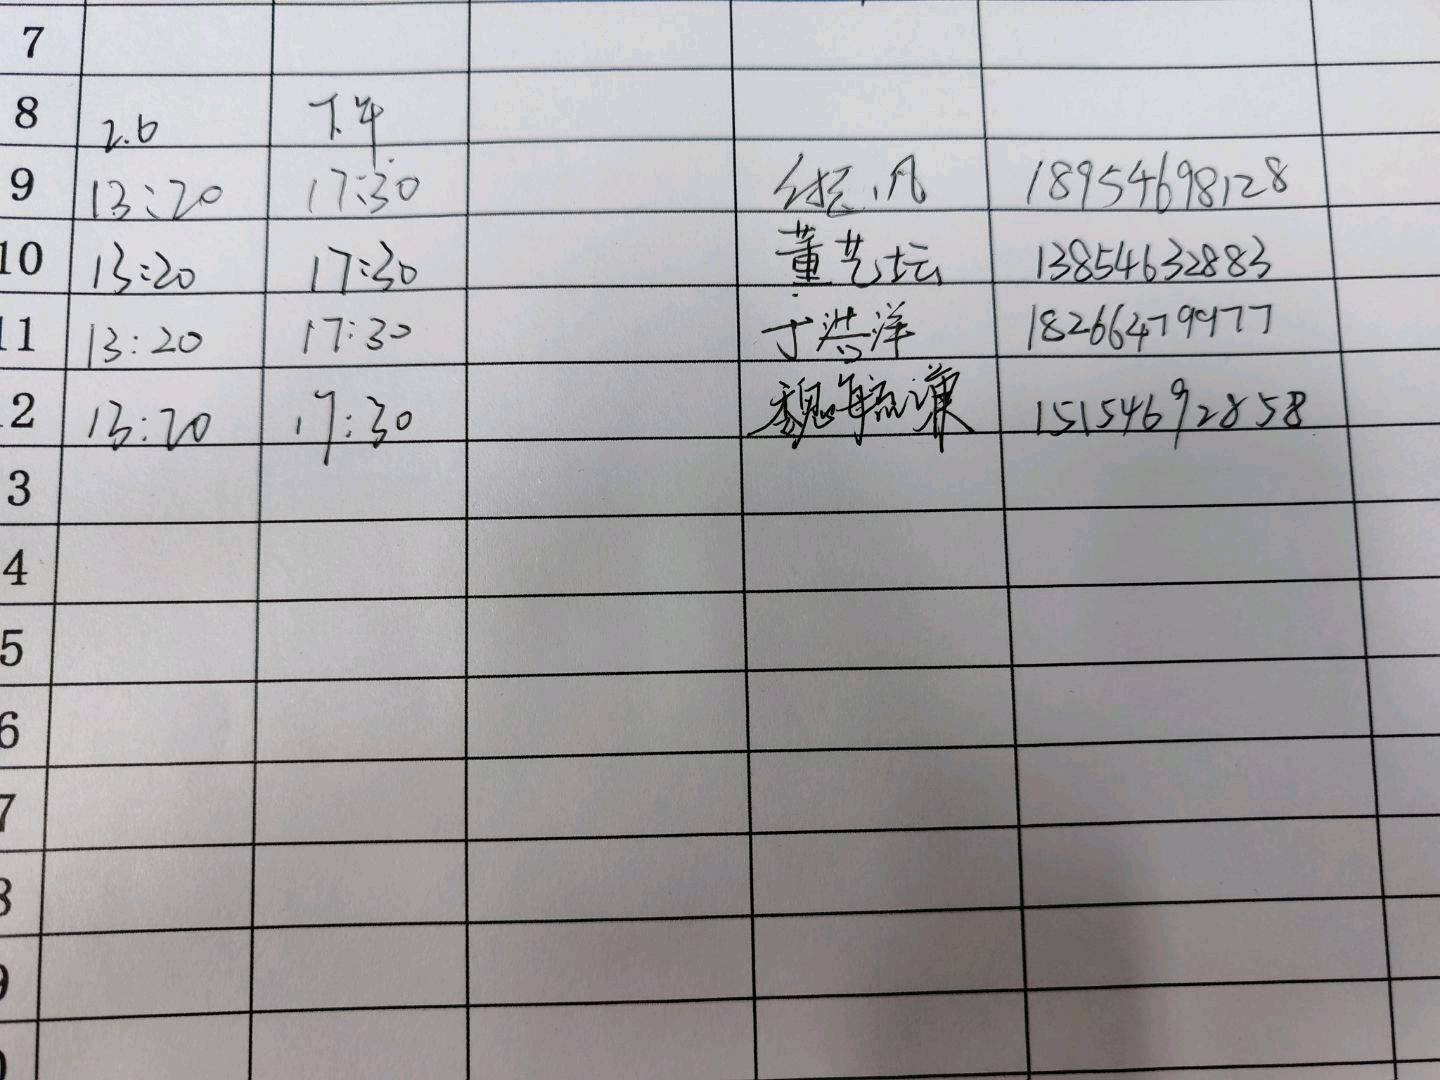 7
8 2.6 下午
9 13:20 17:30 凡 18954698128
10 13:20 17:30 董艺坛 13854632883
11 13:20 17:30 于洪洋 18266479977
2 13:20 17:30 魏 15154692858
3
4
5
6
7
8
9